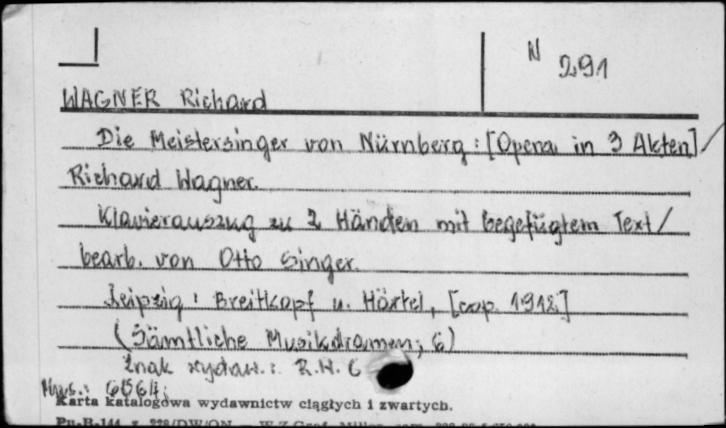 N 291
WAGNER Richard
Die Meistersinger von Nürnberg : [Opera in 3 Akten] /
Richard Wagner.
Klavierauszug zu 2 Händen mit begefügtem Text /
bearb. von Otto Singer.
Leipzig : Breitkopf u. Härtel, [cop. 1912]
(Sämtliche Musikdramen; 6)
Znak wydaw.: R.W. 6
Mus.: 6564;
Karta katalogowa wydawnictw ciągłych i zwartych.
Pu-B-144 z. 228/DW/ON — W.Z.Graf.